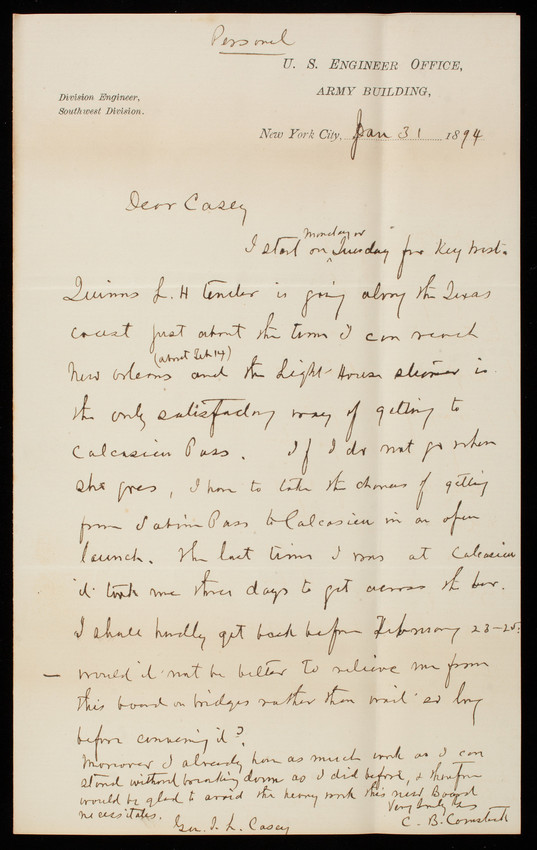 Personal
U. S. ENGINEER OFFICE,
ARMY BUILDING,
Division Engineer,
Southwest Division.
New York City, Jan 31 1894
Dear Casey
Monday or
I start on Tuesday for Key West.
Quinns L. H tender is going along the Texas
coast just about the time I can reach
(about Feb 14)
New Orleans and the Light-House steamer is
the only satisfactory way of getting to
Calcasieu Pass. If I do not go when
she goes, I have to take the chances of getting
from Sabine Pass to Calcasieu in an open
launch. The last time I was at Calcasieu
it took me three days to get across the bar.
I shall hardly get back before February 23-25.
— would it not be better to relieve me from
this board on bridges rather than wait so long
before convening it?
Moreover I already have as much work as I can
stand without breaking down as I did before, & therefore
would be glad to avoid the heavy work this new Board
necessitates.
Very truly yrs
Gen. T. L. Casey
C. B. Comstock